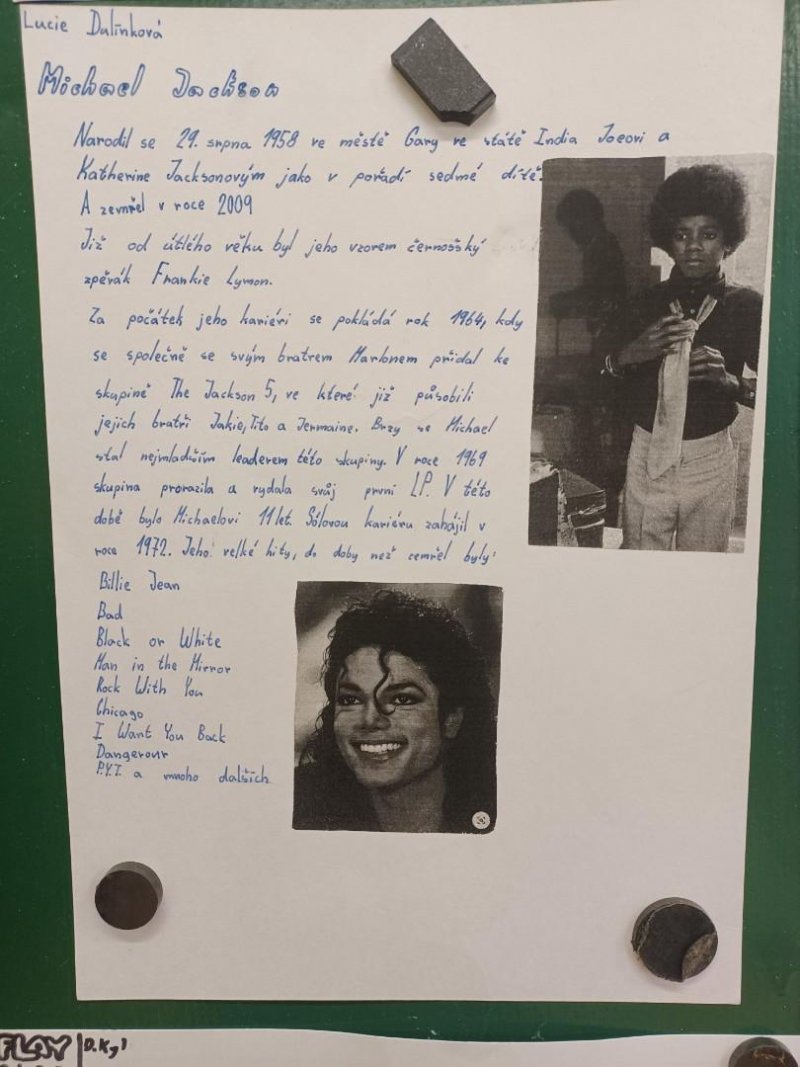 Lucie Dalínková
Michael Jackson
Narodil se 29. srpna 1958 ve městě Gary ve státě India Joeovi a
Katherine Jacksonovým jako v pořadí sedmé dítě.
A zemřel v roce 2009
Již od útlého věku byl jeho vzorem černošský
zpěvák Frankie Lymon.
Za počátek jeho kariéri se pokládá rok 1964, kdy
se společně se svým bratrem Marlonem přidal ke
skupině The Jackson 5, ve které již působili
jejich bratři Jakie, Tito a Jermaine. Brzy se Michael
stal nejmladším leaderem této skupiny. V roce 1969
skupina prorazila a vydala svůj první LP. V této
době bylo Michaelovi 11 let. Sólovou kariéru zahájil v
roce 1972. Jeho velké hity, do doby než zemřel byly:
Billie Jean
Bad
Black or White
Man in the Mirror
Rock With You
Chicago
I Want You Back
Dangerour
P.Y.T. a mnoho dalších
FLAY